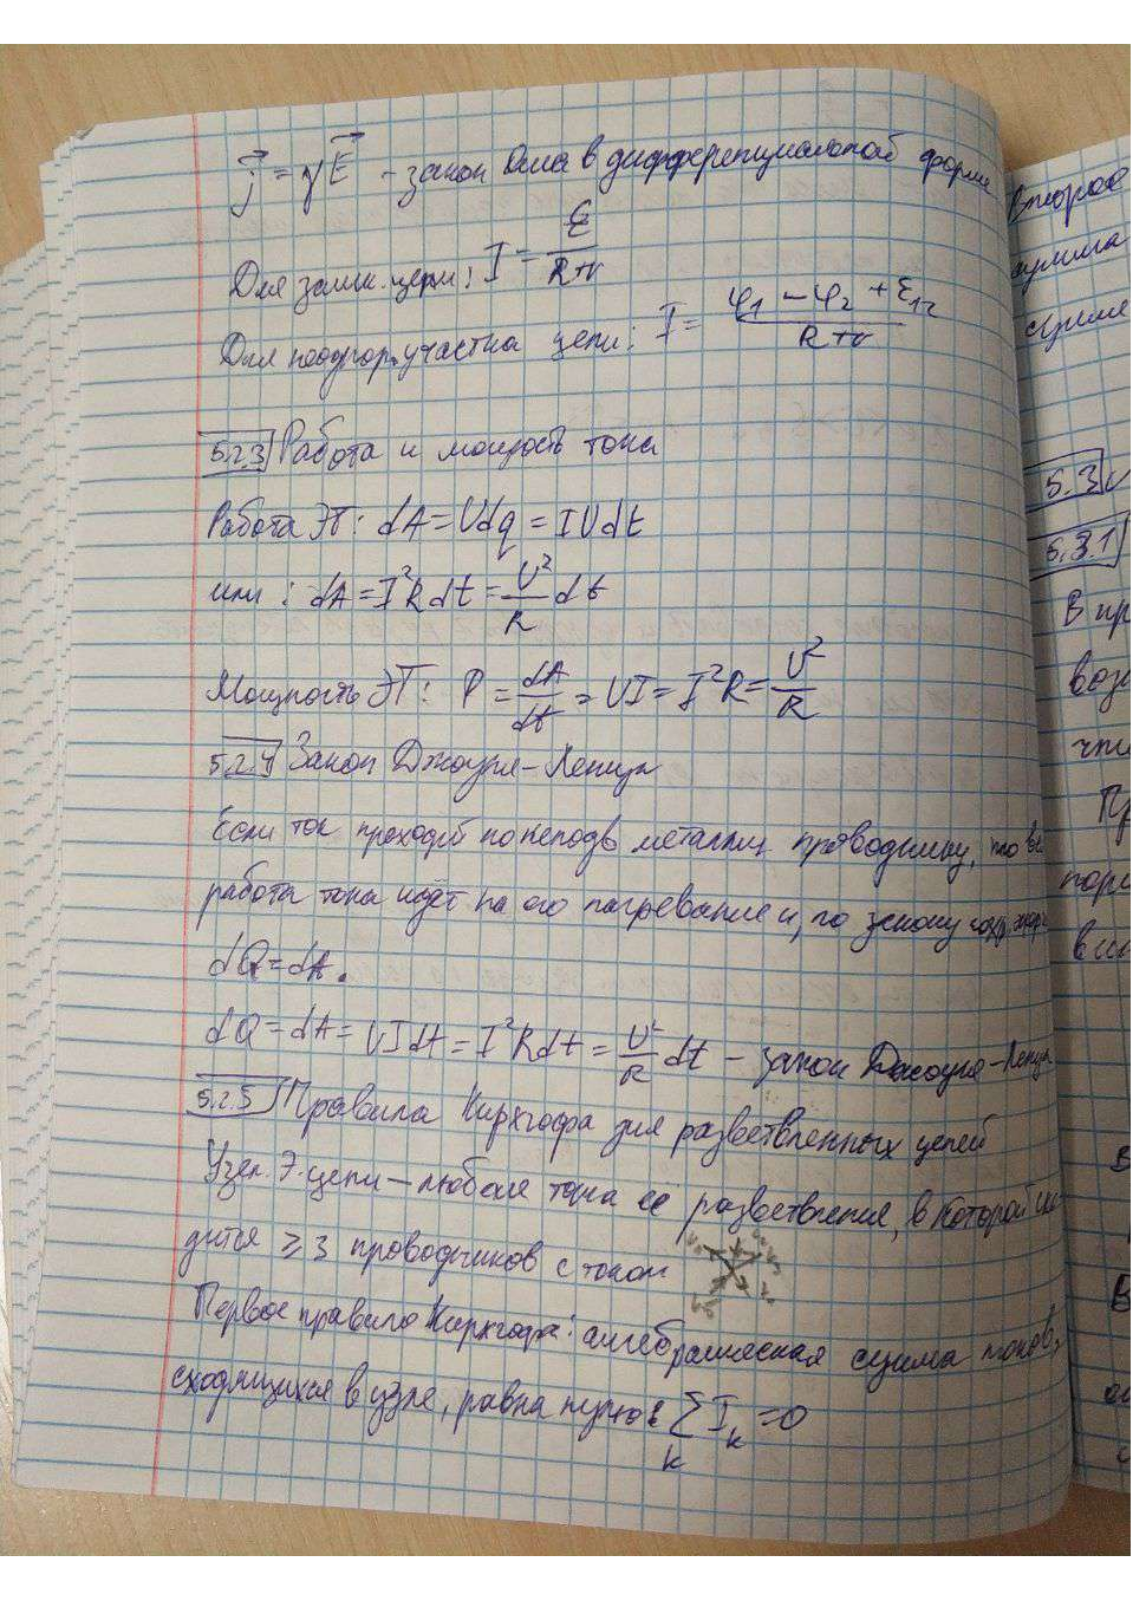 j⃗ = γE⃗ - закон Ома в дифференциальной форме
Для замк. цепи: I = ℰ/(R+r)
Для неоднор. участка цепи: I = (φ₁ - φ₂ + ℰ₁₂)/(R+r)
5.2.3 Работа и мощность тока
Работа ЭТ: dA = Udq = IUdt
или: dA = I²Rdt = U²/R dt
Мощность ЭТ: P = dA/dt = UI = I²R = U²/R
5.2.4 Закон Джоуля-Ленца
Если ток проходит по неподв металлич. проводнику, то вс
работа тока идёт на его нагревание и, по закону сохр. энерг
dQ = dA.
dQ = dA = UIdt = I²Rdt = U²/R dt - закон Джоуля-Ленца
5.2.5 Правила Кирхгофа для разветвленных цепей
Узел Э. цепи - любая точка её разветвления, в которой схо
дится ≥ 3 проводников с током
Первое правило Кирхгофа: алгебраическая сумма токов,
сходящихся в узле, равна нулю: ∑ₖ Iₖ = 0
Второе
сумма
5.3
5.3.1
В пр
воз